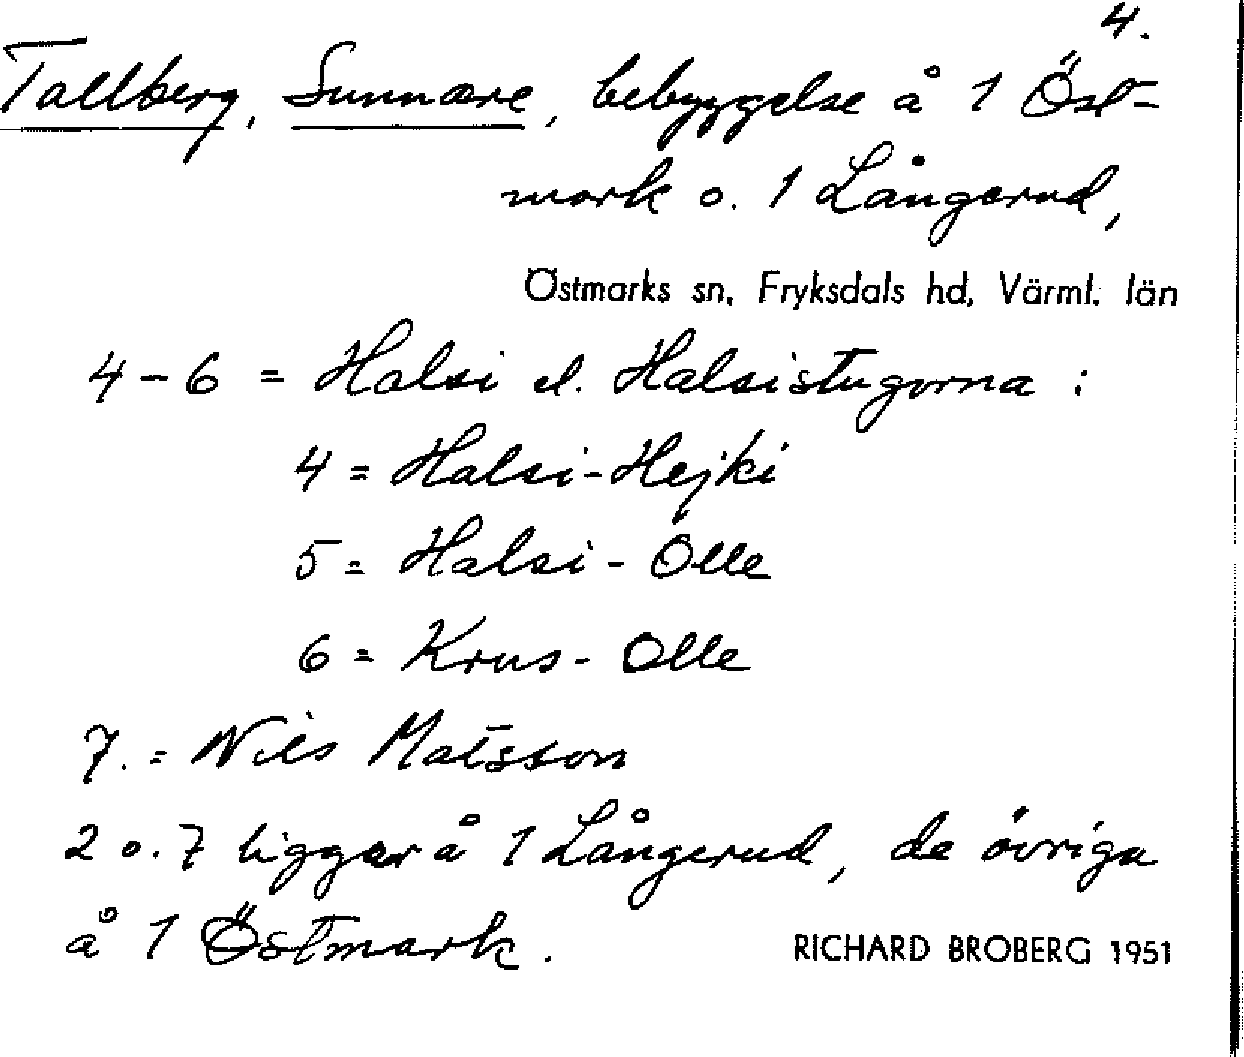 4.
Tallberg, Sunnare, bebyggelse å 1 Öst-
mark o. 1 Långerud,
Östmarks sn, Fryksdals hd, Värml. län
4-6 = Halsi el. Halsistugorna :
4 = Halsi-Hejki
5 = Halsi - Olle
6 = Krus - Olle
7. = Nils Matsson
2 o. 7 ligger å 1 Långerud, de övriga
å 1 Östmark.
RICHARD BROBERG 1951